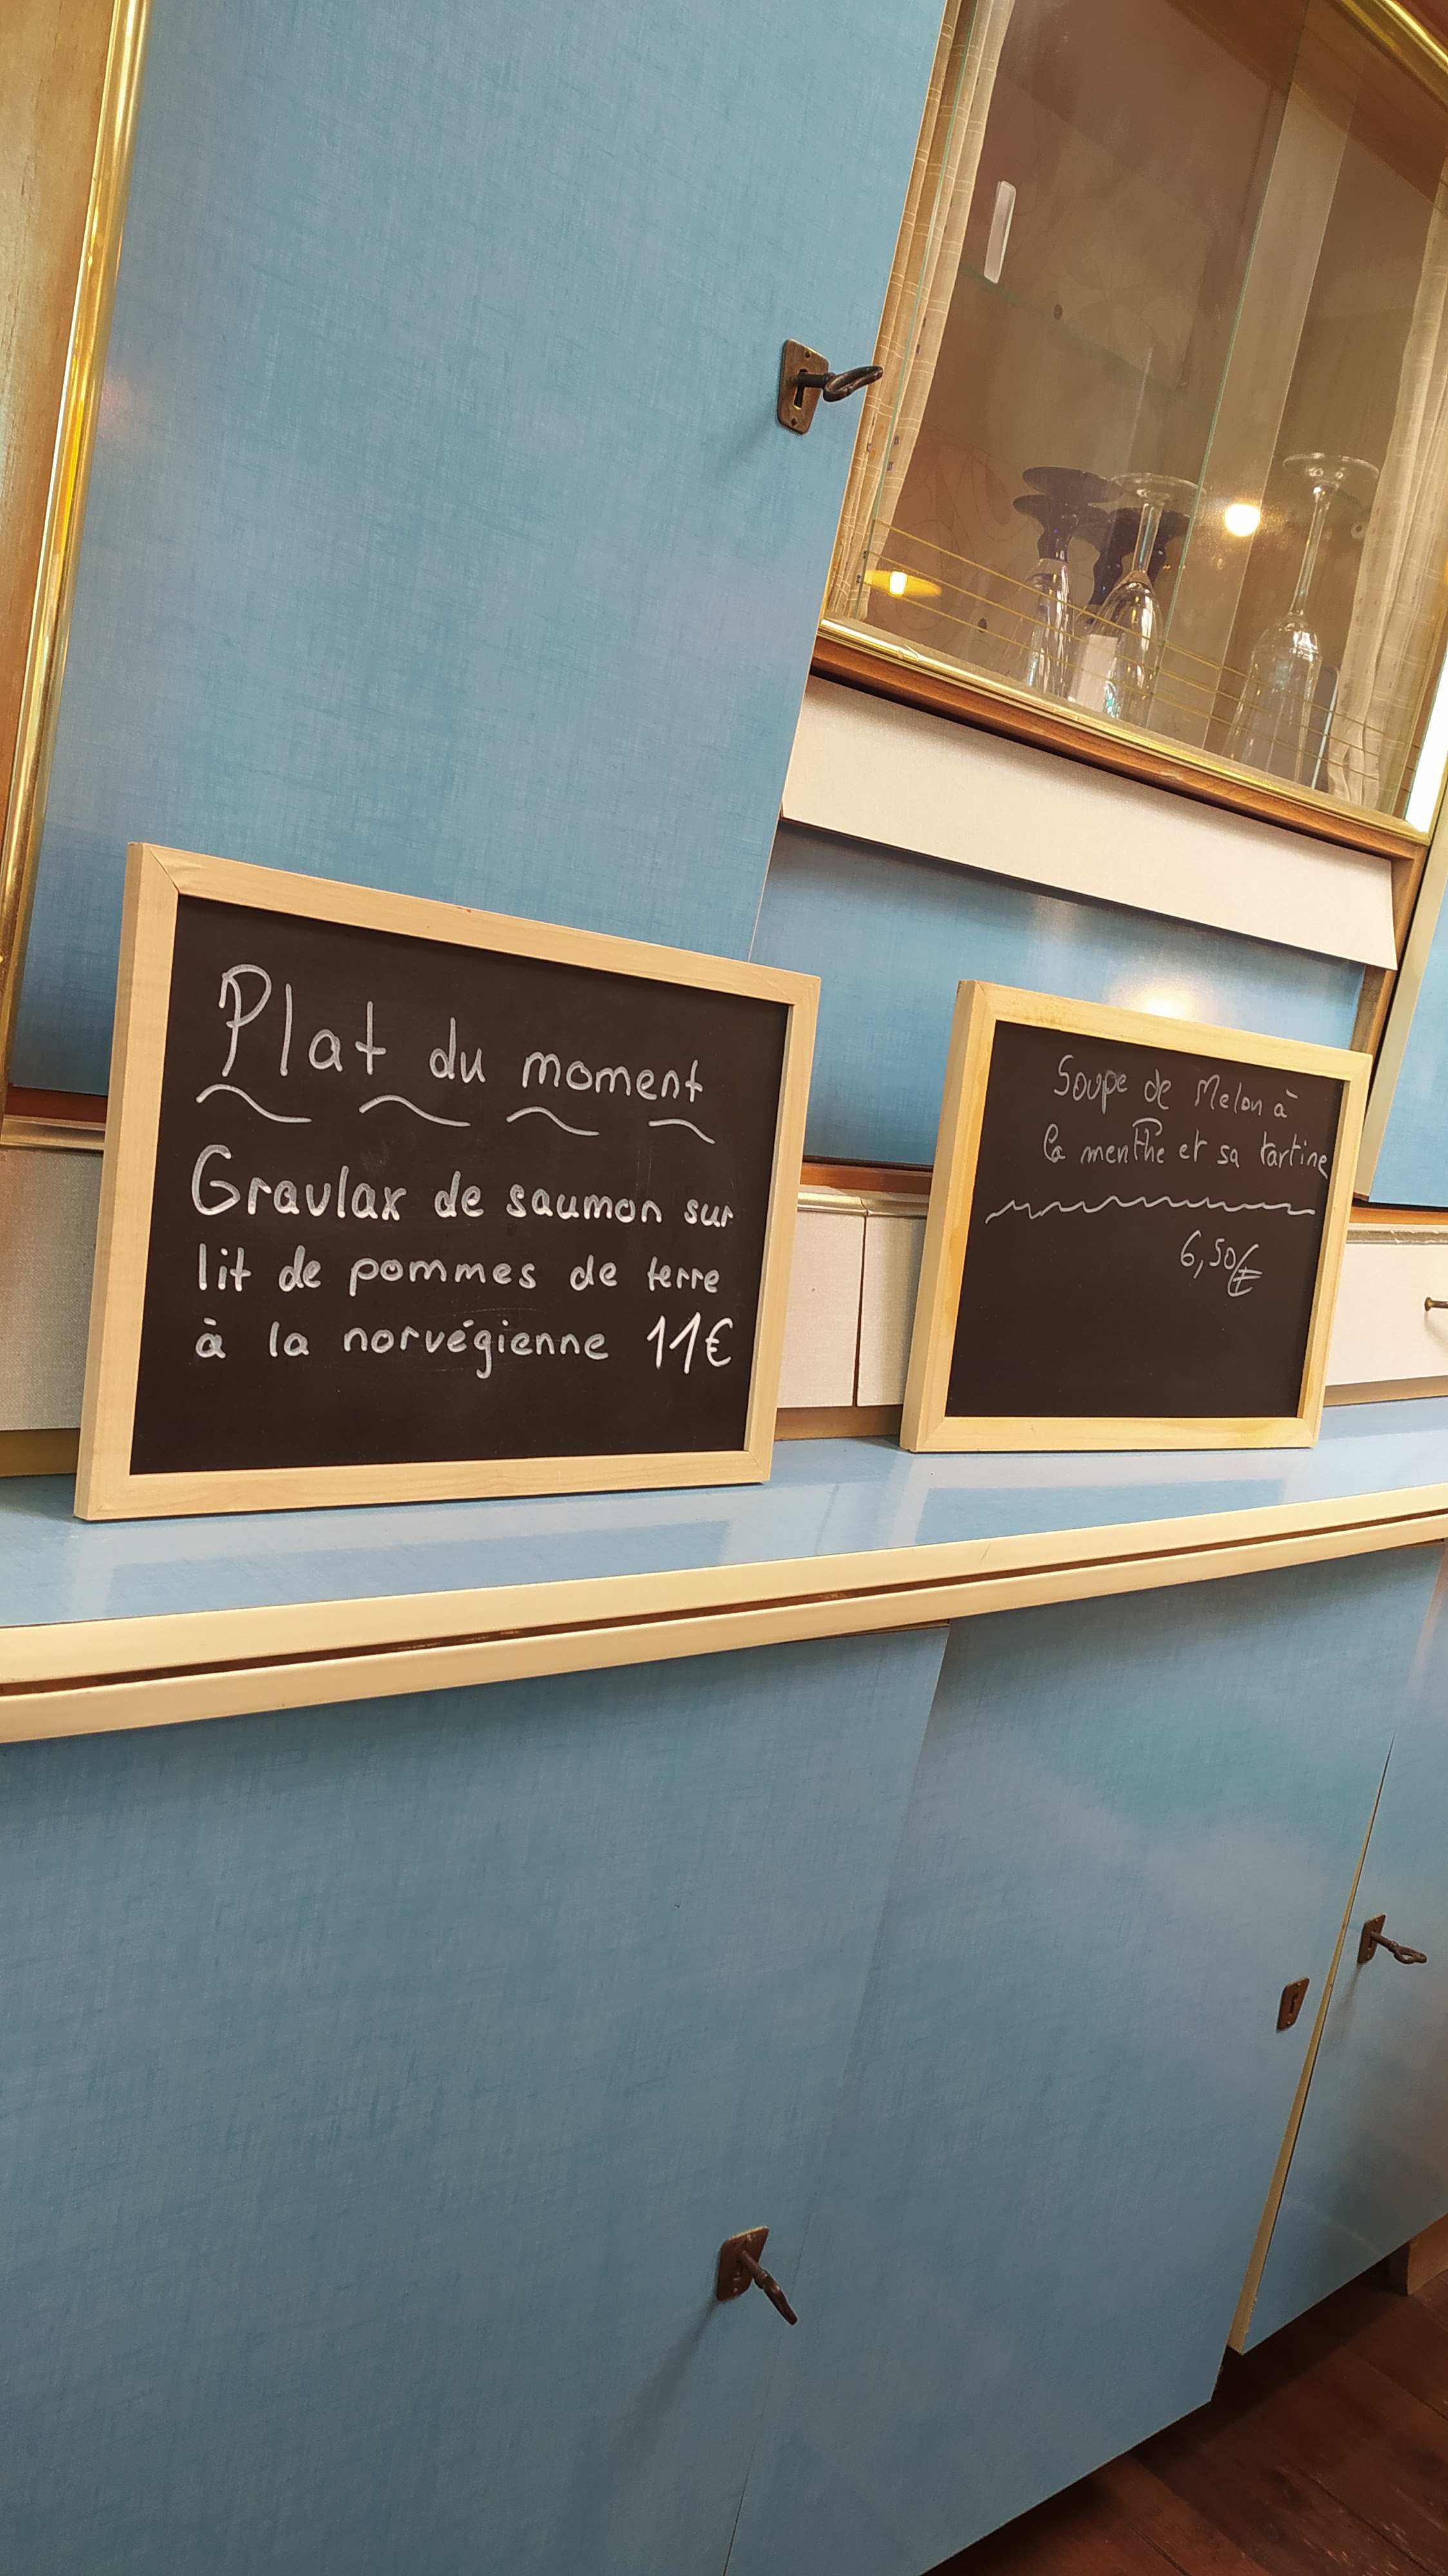 Plat du moment
Gravlax de saumon sur
lit de pommes de terre
à la norvégienne 11€
Soupe de Melon à
la menthe et sa tartine
6,50€